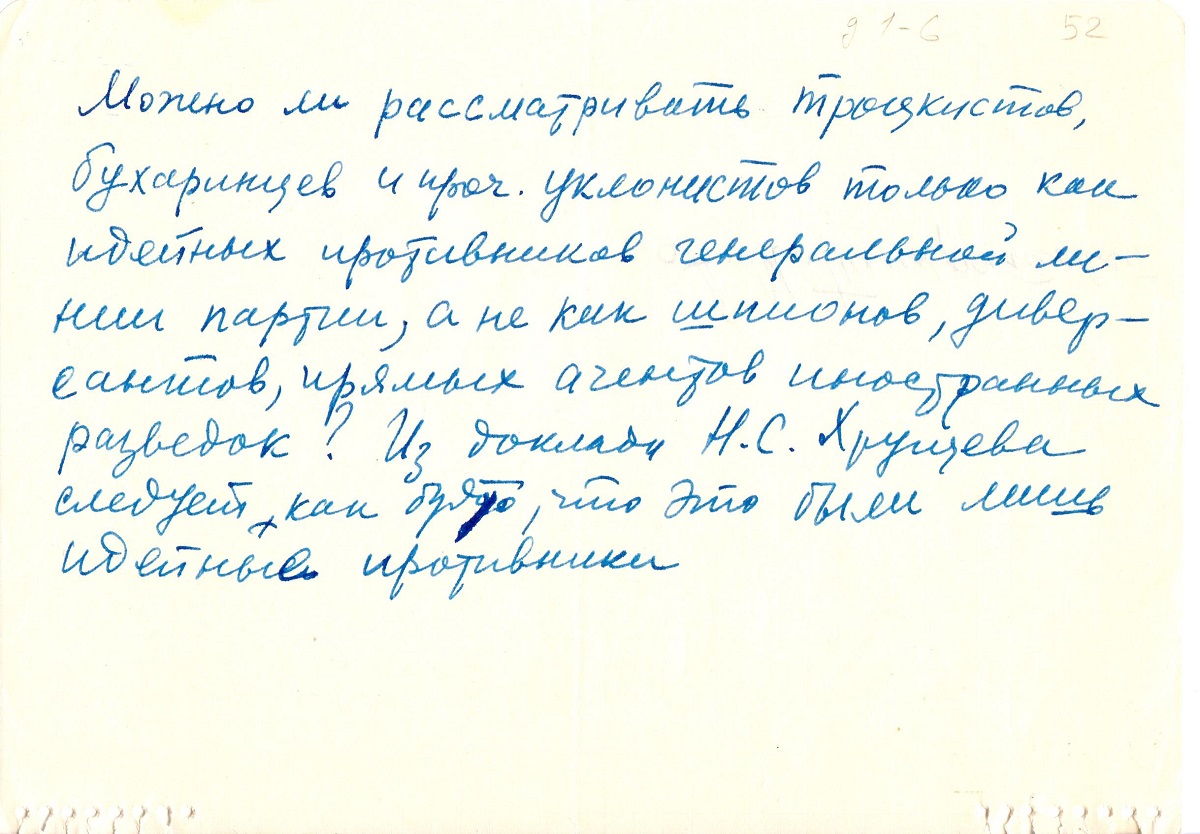 д 1-6 52
Можно ли рассматривать троцкистов,
бухаринцев и проч. уклонистов только как
идейных противников генеральной ли-
нии партии, а не как шпионов, дивер-
сантов, прямых агентов иностранных
разведок? Из доклада Н.С. Хрущева
следует, как будто, что это были лишь
идейные противники